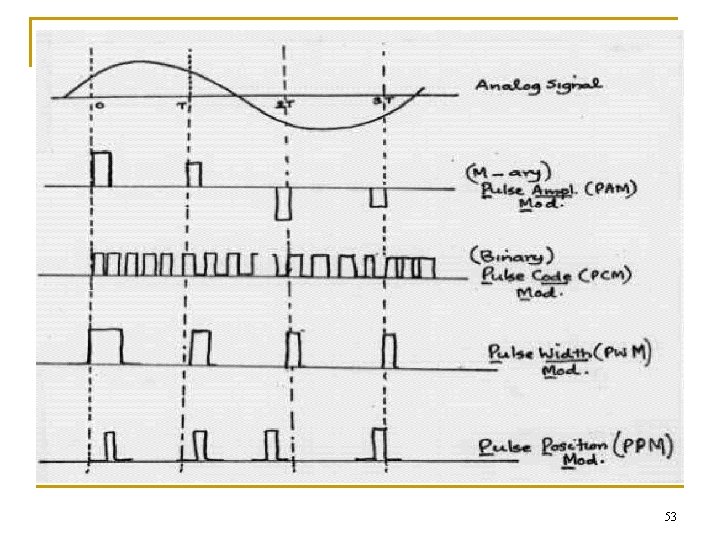 Analog Signal
0 T 2T 3T
(M-ary)
Pulse Ampl. (PAM)
Mod.
(Binary)
Pulse Code (PCM)
Mod.
Pulse Width (PWM)
Mod.
Pulse Position (PPM)
Mod.
53